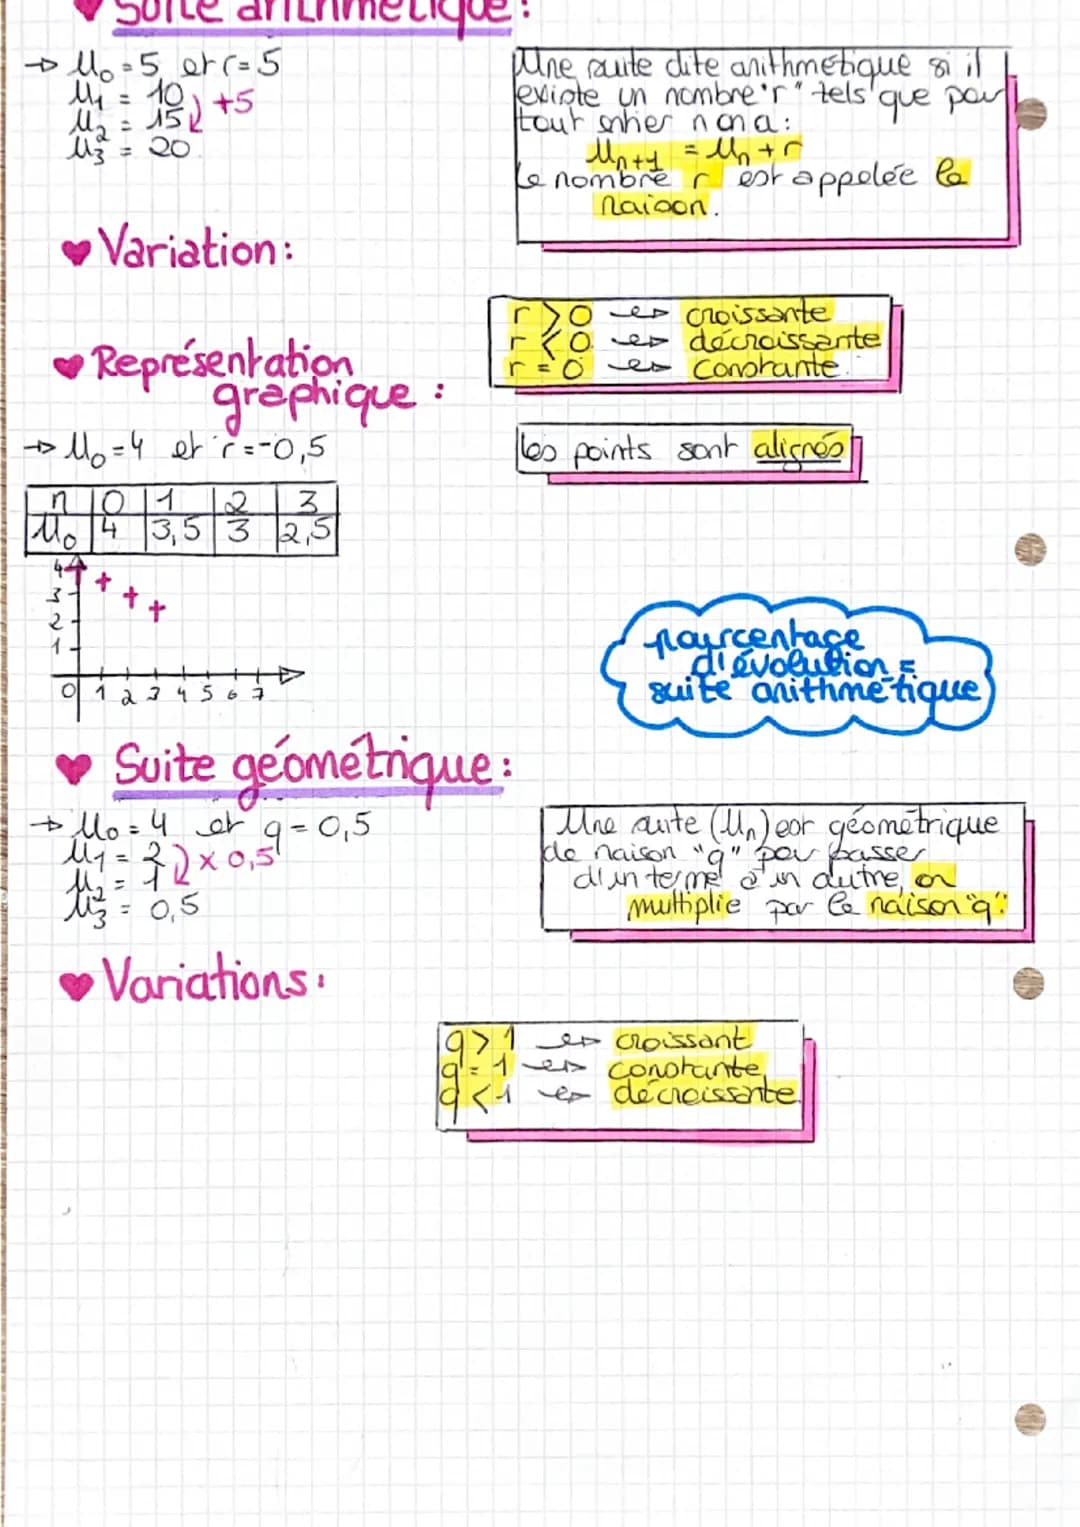 Suite arithmétique :
→ U0 = 5 et r = 5
U1 = 10
U2 = 15
+5
U3 = 20
Une suite dite arithmétique si il
existe un nombre "r" tels que pour
tout entier n on a :
Un+1 = Un + r
Le nombre r est appelée la
raison.
Variation :
r > 0 → croissante
r < 0 → décroissante
r = 0 → constante.
Représentation
graphique :
→ U0 = 4 et r = -0,5
les points sont alignés
n 0 1 2 3
U0 4 3,5 3 2,5
4
3
2
1
0 1 2 3 4 5 6 7
pourcentage
d'évolution =
suite arithmétique
Suite géométrique :
→ U0 = 4 et q = 0,5
U1 = 2
× 0,5
U2 = 1
U3 = 0,5
Une suite (Un) est géométrique
de raison "q" pour passer
d'un terme à un autre, on
multiplie par la raison "q".
Variations :
q > 1 → croissant
q = 1 → constante
q < 1 → décroissante